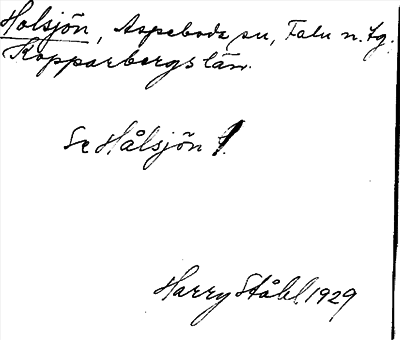 Holsjön, Aspeboda sn, Falu n. tg.
Kopparbergs län.
Se Hålsjön 1.
Harry Ståhl 1929